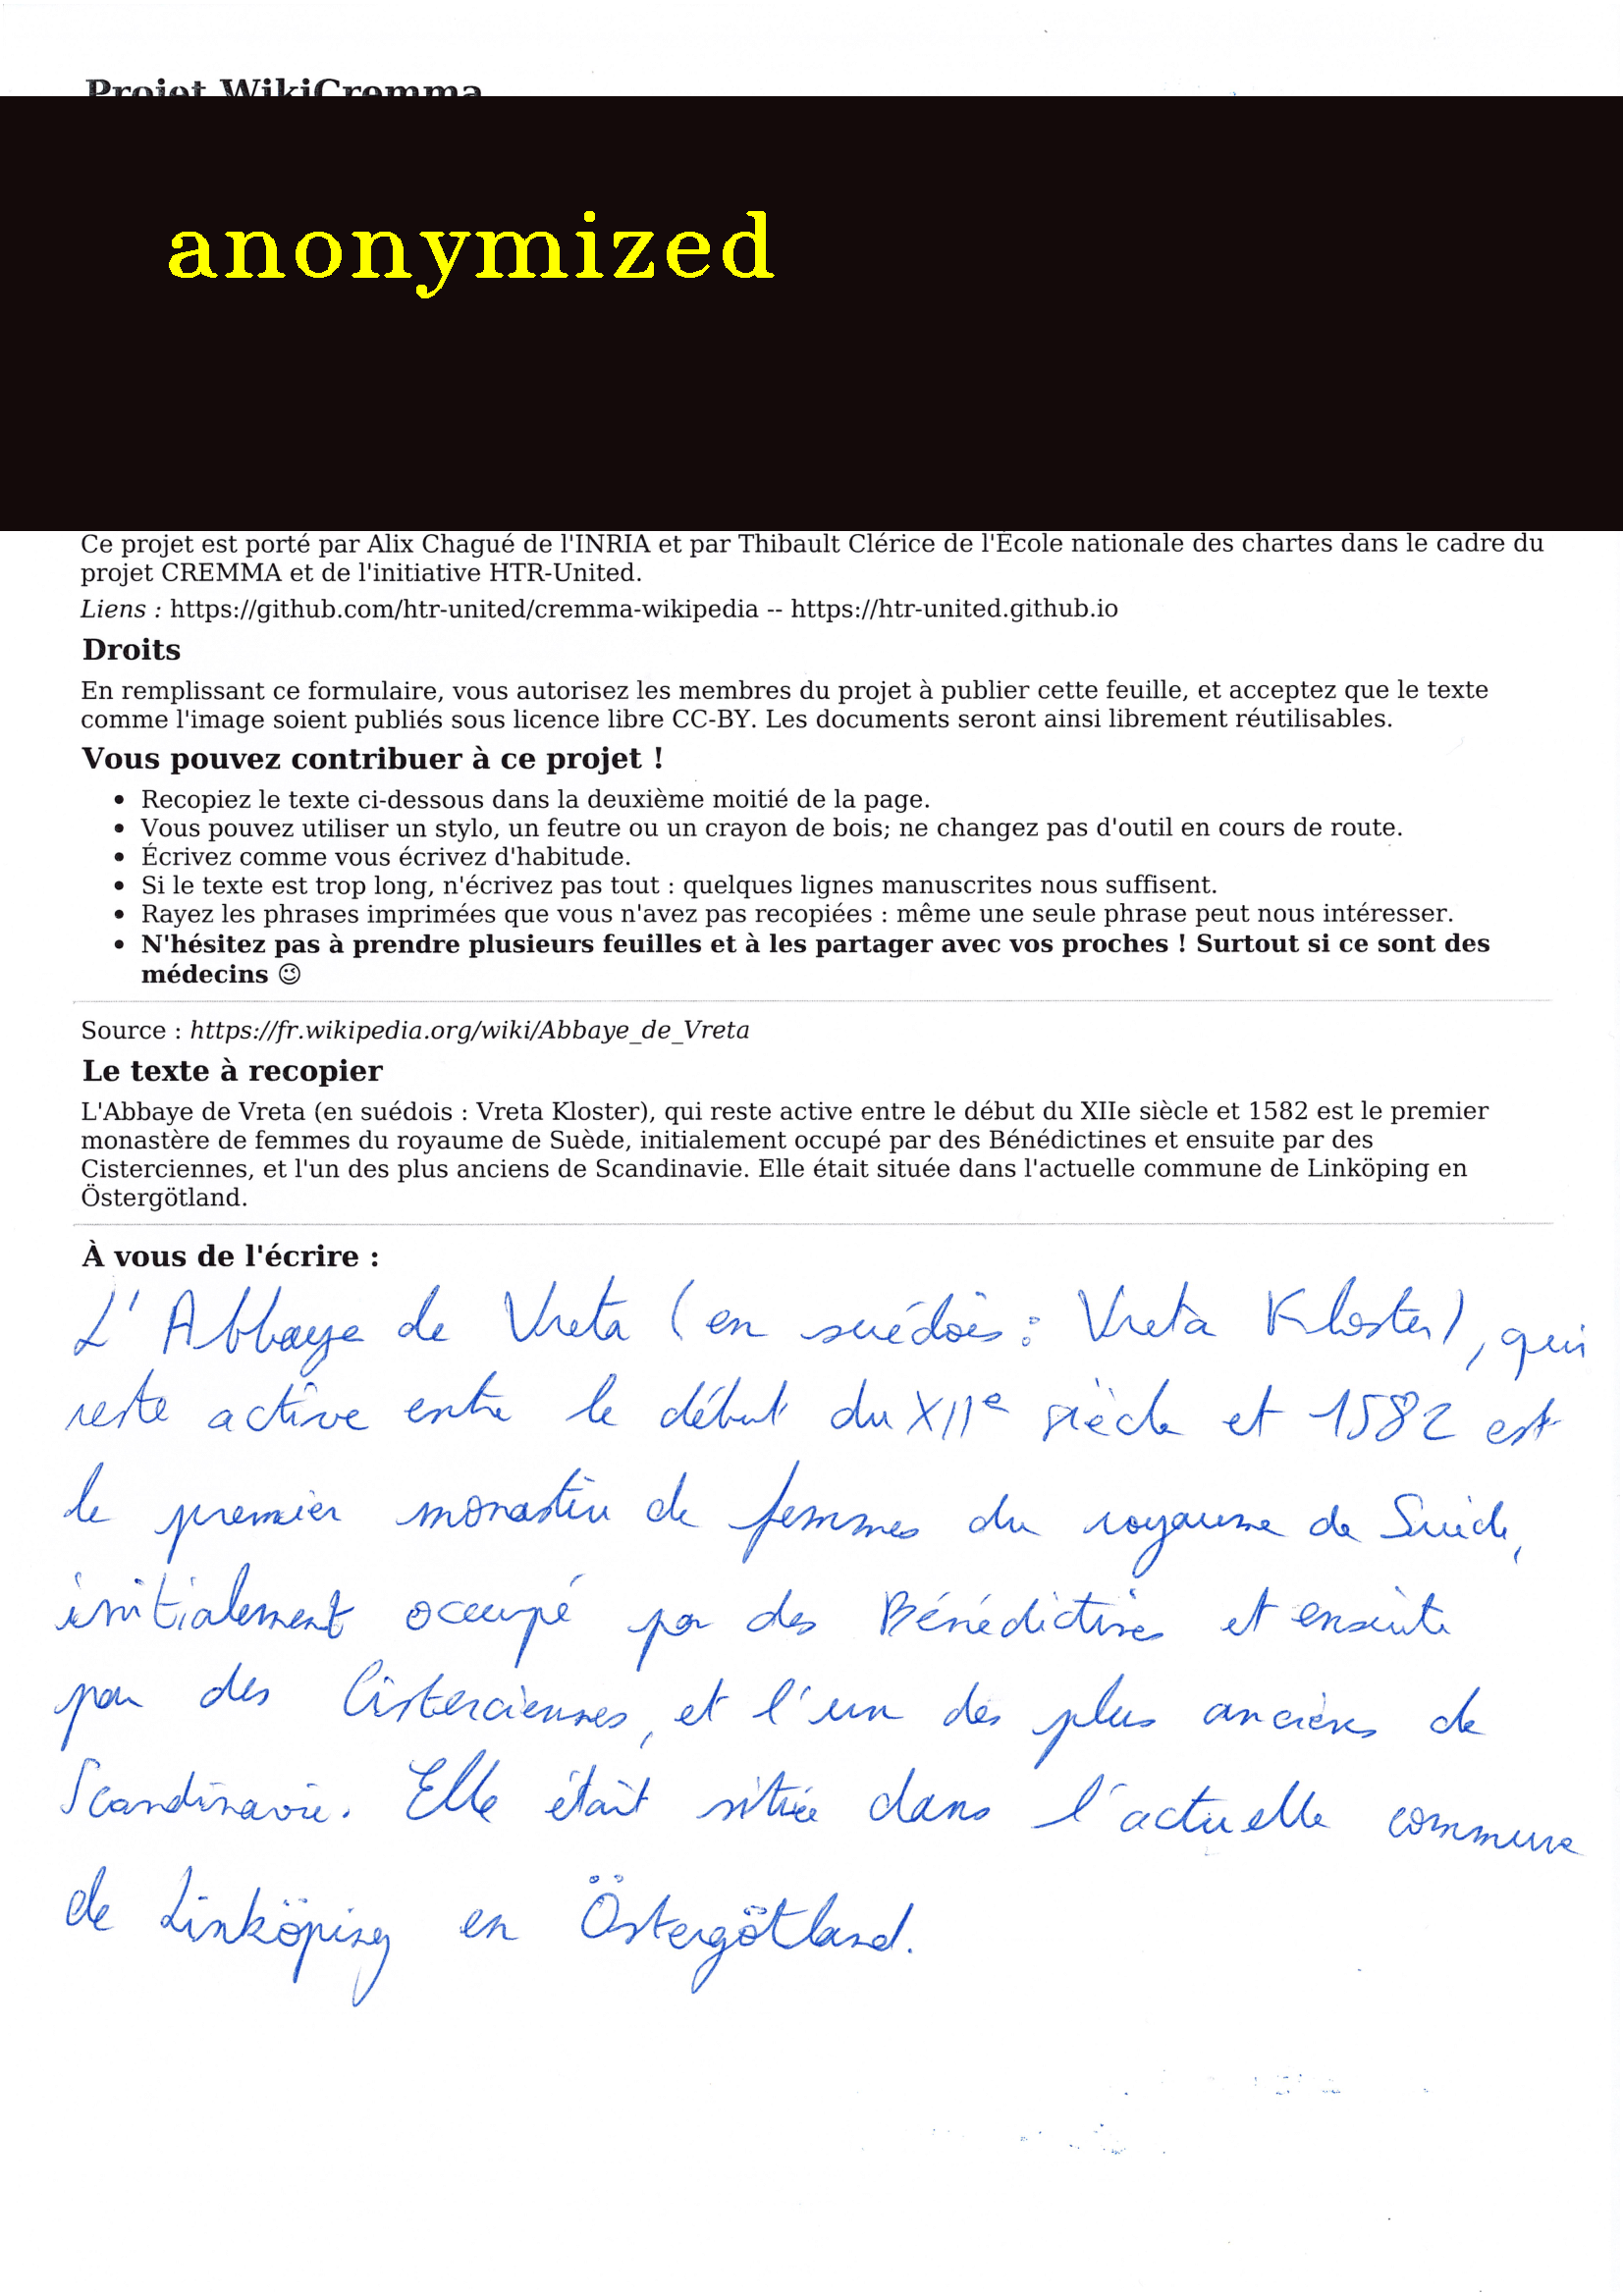 Projet WikiCremma
anonymized
Ce projet est porté par Alix Chagué de l'INRIA et par Thibault Clérice de l'École nationale des chartes dans le cadre du
projet CREMMA et de l'initiative HTR-United.
Liens : https://github.com/htr-united/cremma-wikipedia -- https://htr-united.github.io
Droits
En remplissant ce formulaire, vous autorisez les membres du projet à publier cette feuille, et acceptez que le texte
comme l'image soient publiés sous licence libre CC-BY. Les documents seront ainsi librement réutilisables.
Vous pouvez contribuer à ce projet !
• Recopiez le texte ci-dessous dans la deuxième moitié de la page.
• Vous pouvez utiliser un stylo, un feutre ou un crayon de bois; ne changez pas d'outil en cours de route.
• Écrivez comme vous écrivez d'habitude.
• Si le texte est trop long, n'écrivez pas tout : quelques lignes manuscrites nous suffisent.
• Rayez les phrases imprimées que vous n'avez pas recopiées : même une seule phrase peut nous intéresser.
• N'hésitez pas à prendre plusieurs feuilles et à les partager avec vos proches ! Surtout si ce sont des
médecins 😉
Source : https://fr.wikipedia.org/wiki/Abbaye_de_Vreta
Le texte à recopier
L'Abbaye de Vreta (en suédois : Vreta Kloster), qui reste active entre le début du XIIe siècle et 1582 est le premier
monastère de femmes du royaume de Suède, initialement occupé par des Bénédictines et ensuite par des
Cisterciennes, et l'un des plus anciens de Scandinavie. Elle était située dans l'actuelle commune de Linköping en
Östergötland.
À vous de l'écrire :
L'Abbaye de Vreta (en suédois : Vreta Kloster), qui
reste active entre le début du XIIe siècle et 1582 est
le premier monastère de femmes du royaume de Suède,
initialement occupé par des Bénédictines et ensuite
par des Cisterciennes, et l'un des plus anciens de
Scandinavie. Elle était située dans l'actuelle commune
de Linköping en Östergötland.